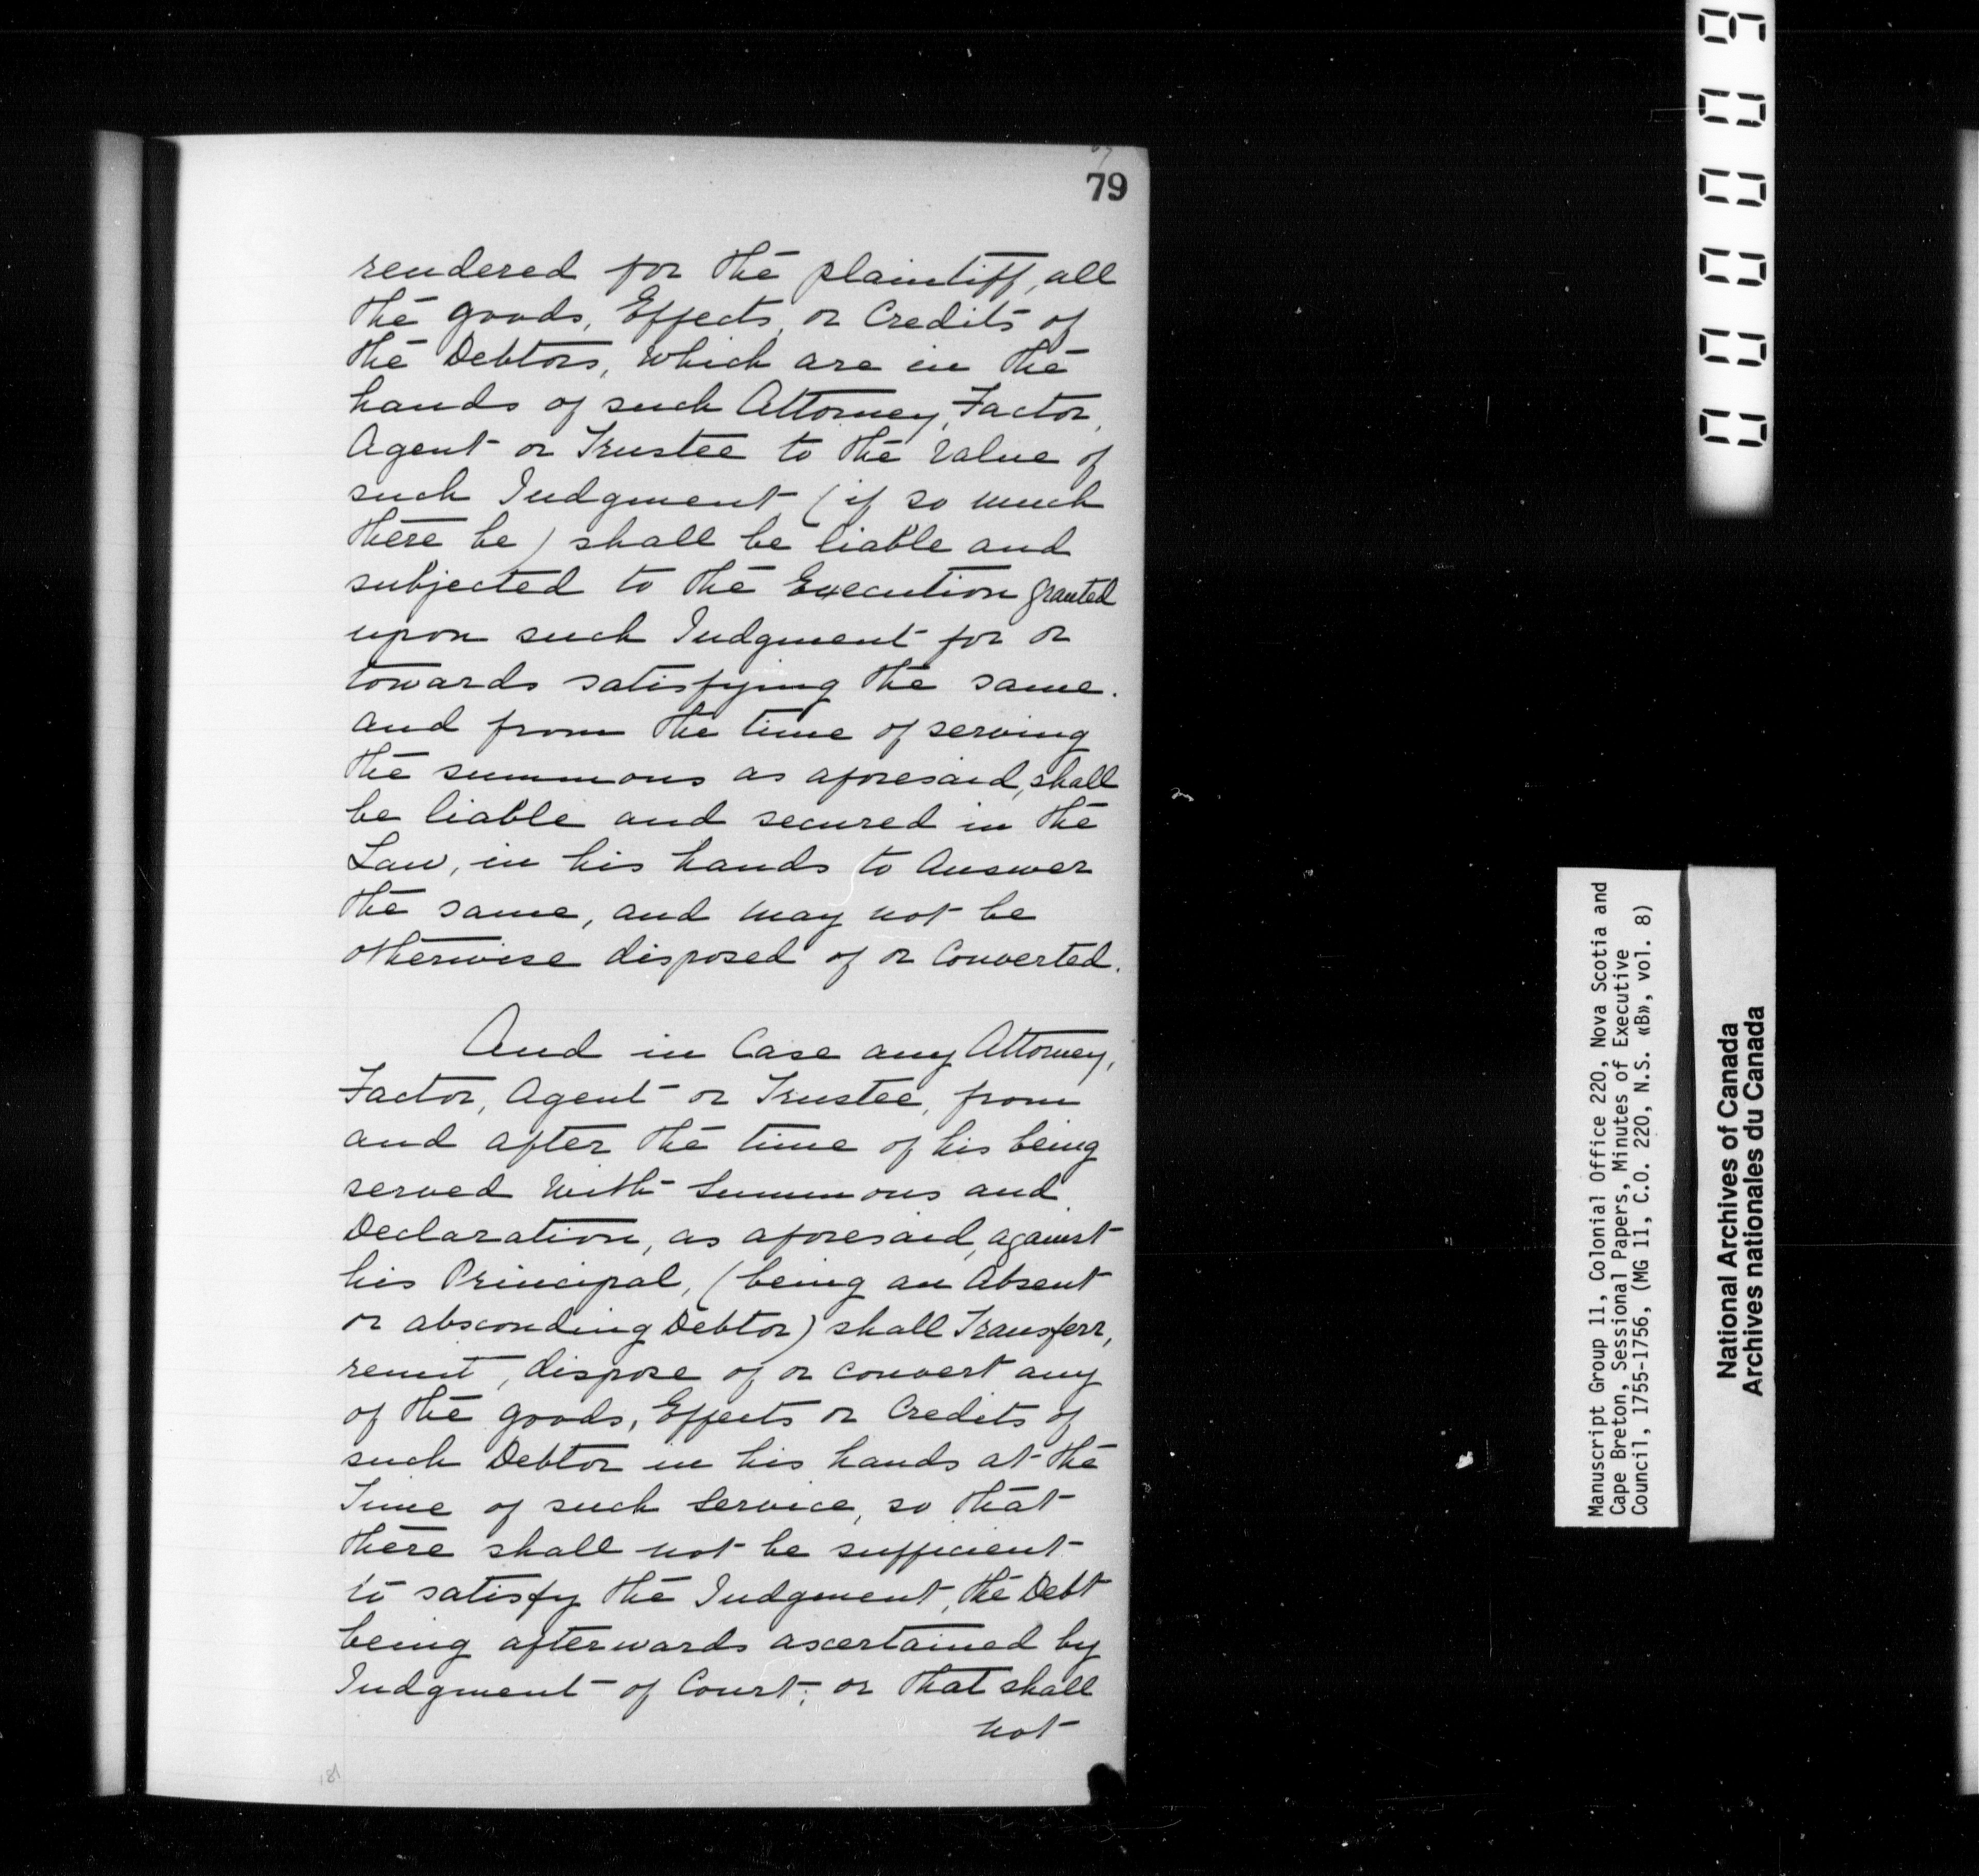 79
rendered for the plaintiff, all
the goods, Effects, or Credits of
the Debtors, which are in the
hands of such Attorney, Factor,
Agent or Trustee to the Value of
such Judgment (if so much
there be) shall be liable and
subjected to the Execution granted
upon such Judgment for or
towards satisfying the same.
and from the time of serving
the summons as aforesaid, shall
be liable and secured in the
Law, in his hands to Answer
the same, and may not be
otherwise disposed of or Converted.
And in Case any Attorney,
Factor, Agent or Trustee, from
and after the time of his being
served with Summons and
Declaration, as aforesaid, against
his Principal, (being an Absent
or absconding Debtor) shall Transferr,
remit, dispose of or convert any
of the goods, Effects or Credits of
such Debtor in his hands at the
Time of such Service, so that
there shall not be sufficient
to satisfy the Judgment, the Debt
being afterwards ascertained by
Judgment of Court; or that shall
not
181
000009
Manuscript Group 11, Colonial Office 220, Nova Scotia and
Cape Breton, Sessional Papers, Minutes of Executive
Council, 1755-1756, (MG 11, C.O. 220, N.S. «B», vol. 8)
National Archives of Canada
Archives nationales du Canada